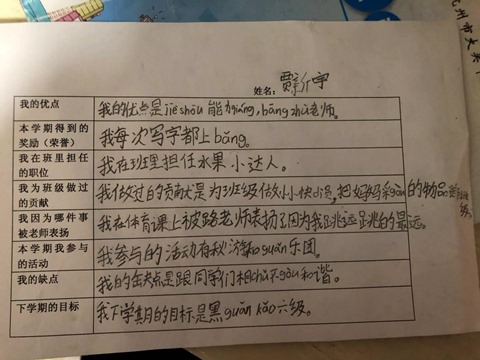 杭州市大关
姓名：贾
我的优点 我的优点是jiē shōu 能力qiáng，bāng zhù老师。
本学期得到的奖励（荣誉） 我每次写字都上bǎng。
我在班里担任的职位 我在班里担任水果小达人。
我为班级做过的贡献 我做过的贡献是为班级做小小快递，把妈妈采gòu的物品带班级。
我因为哪件事被老师表扬 我在体育课上被路老师表扬了因为我跳远跳的最远。
本学期我参与的活动 我参与的活动有秋游和guǎn乐团。
我的缺点 我的缺点是跟同学们相chǔ不gòu和谐。
下学期的目标 我下学期的目标是黑guǎn kǎo六级。